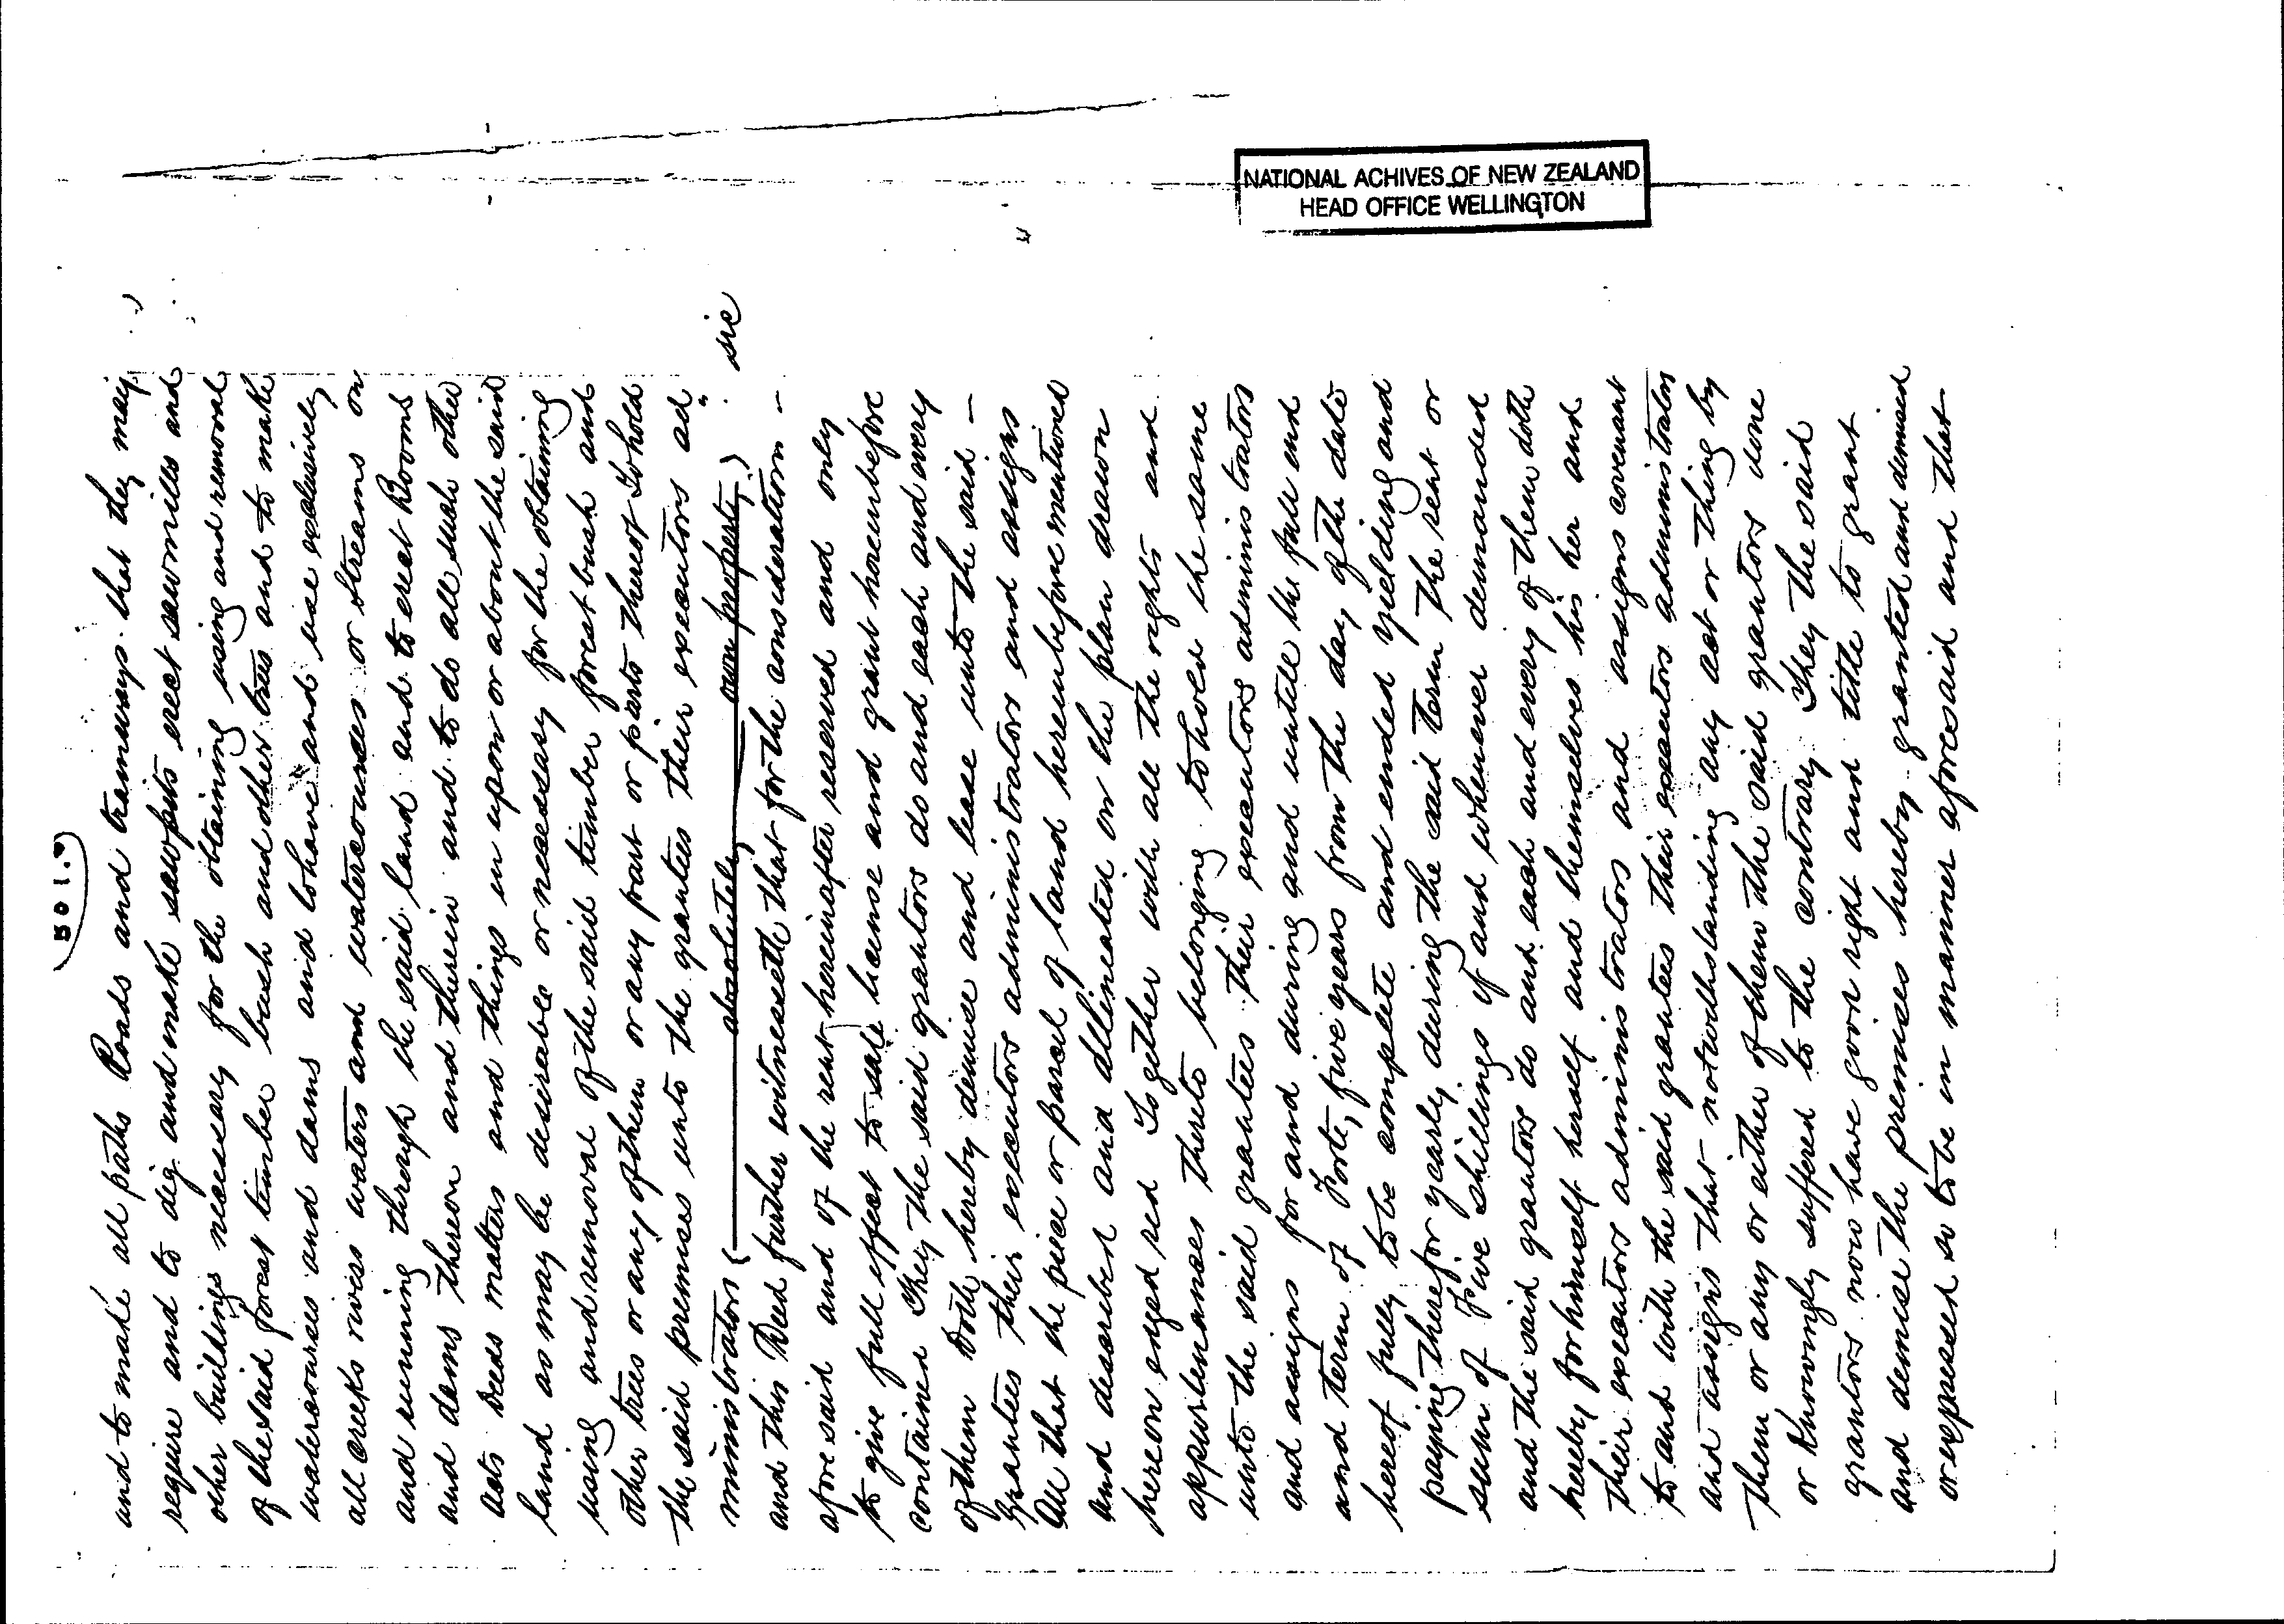 501.
and to make all paths Roads and tramways that they may
require and to dig and make sawpits erect sawmills and
other buildings necessary for the obtaining using and removal
of the said forest timber bush and other trees and to make
watercourses and dams and to have and use exclusively
all creeks rivers waters and watercourses or streams on
and running through the said land and to erect Booms
and dams thereon and therein and to do all such other
acts Deeds matters and things in upon or about the said
land as may be desirable or necessary for the obtaining
using and removal of the said timber forest bush and
other trees or any of them or any part or parts thereof To hold
the said premises unto the grantees their executors ad
ministrators ( absolutely own property ) " sic
and this Deed further witnesseth that for the consideration –
aforesaid and of the rent hereinafter reserved and only
to give full effect to sale license and grant hereinbefore
contained They the said grantors do and each and every
of them Doth hereby demise and lease unto the said –
grantees their executors administrators and assigns
All that the piece or parcel of land hereinbefore mentioned
and described and delineated on the plan drawn
hereon edged red Together with all the rights and
appurtenances thereto belonging to hold the same
unto the said grantees their executors administrators
and assigns for and during and untill the full end
and term of Forty five years from the day of the date
hereof fully to be complete and ended yielding and
paying therefor yearly during the said term the rent or
sum of Five shillings if and whenever demanded
and the said grantors do and each and every of them doth
hereby for himself herself and themselves his her and
their executors administrators and assigns covenant
to and with the said grantees their executors administrators
and assigns that notwithstanding any act or thing by
them or any or either of them the said grantors done
or Knowingly suffered to the contrary They the said
grantors now have good right and title to grant
and demise the premises hereby granted and demised
or expressed so to be in manner aforesaid and that
NATIONAL ACHIVES OF NEW ZEALAND
HEAD OFFICE WELLINGTON